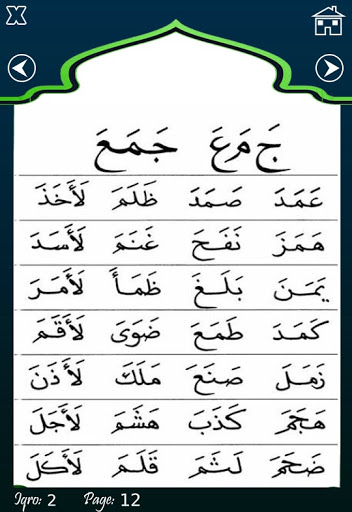 جَ مَ عَ جَمَعَ
عَمَدَ صَمَدَ ظَلَمَ لَأَخَذَ
هَمَزَ نَفَحَ غَنَمَ لَأَسَدَ
يَمَنَ بَلَغَ ظَمَأَ لَأَمَرَ
كَمَدَ طَمَعَ ضَوَىَ لَأَقَمَ
زَمَلَ صَنَعَ مَلَكَ لَأَذَنَ
هَجَمَ كَذَبَ هَشَمَ لَأَجَلَ
ضَخَمَ لَثَمَ قَلَمَ لَأَكَلَ
Iqro: 2 Page: 12